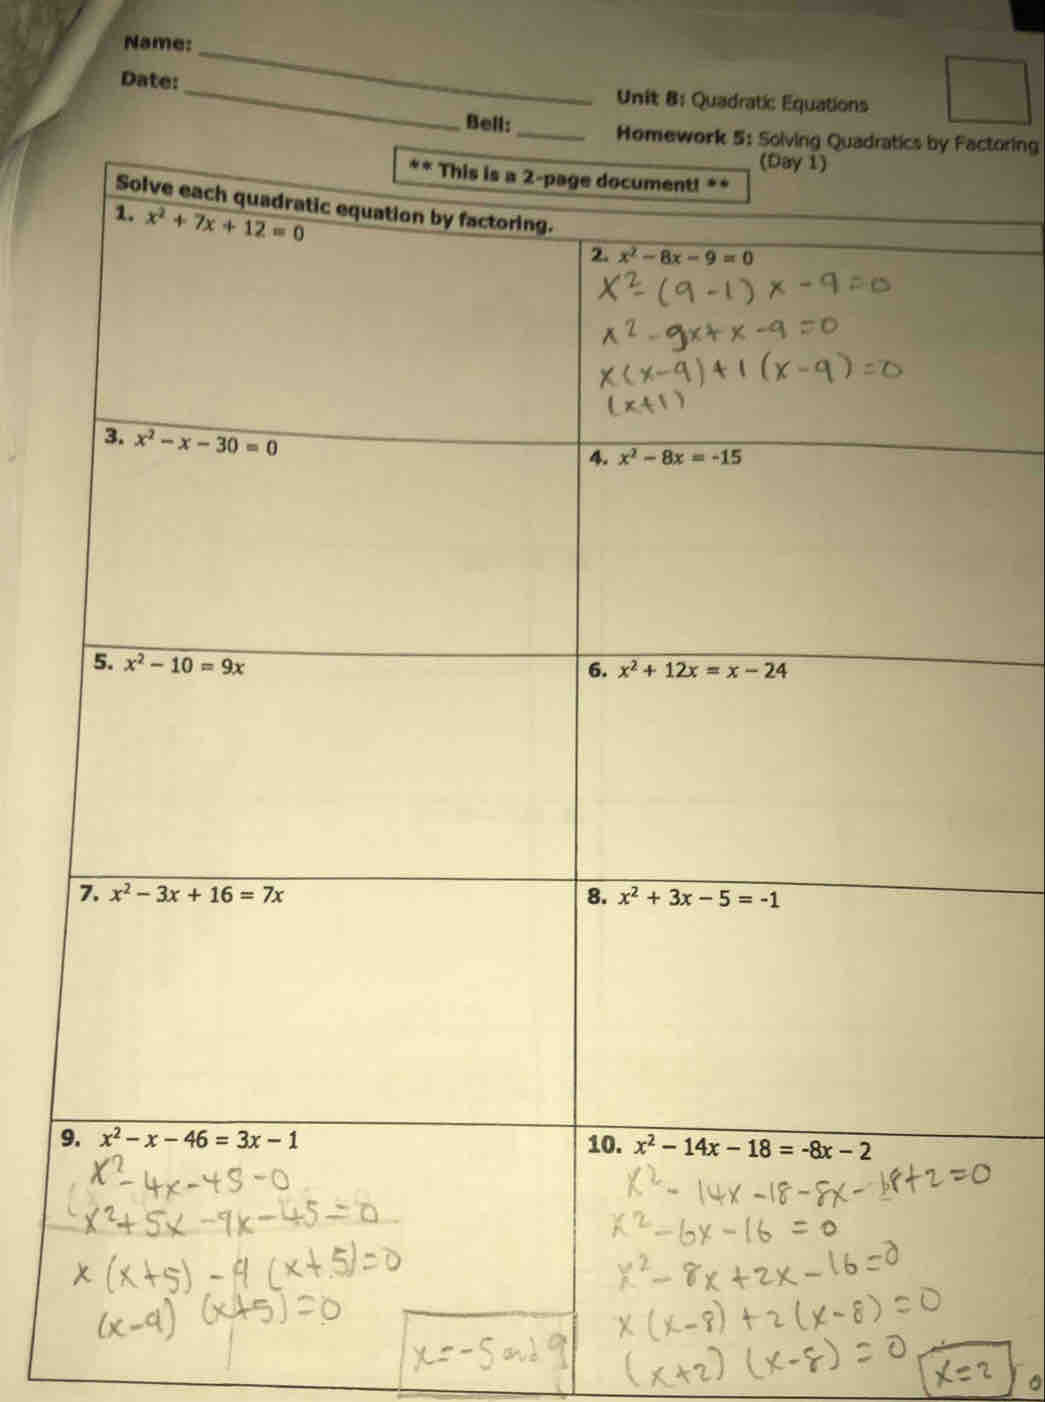 Name:
Date:
Bell:
Unit 8: Quadratic Equations
Homework 5: Solving Quadratics by Factoring
(Day 1)
** This is a 2-page document! **
Solve each quadratic equation by factoring.
1. x² + 7x + 12 = 0
2. x² − 8x − 9 = 0
x² − (9 − 1) x − 9 = 0
x² − 9x + x − 9 = 0
x(x − 9) + 1 (x − 9) = 0
(x + 1)
3. x² − x − 30 = 0
4. x² − 8x = -15
5. x² − 10 = 9x
6. x² + 12x = x − 24
7. x² − 3x + 16 = 7x
8. x² + 3x − 5 = -1
9. x² − x − 46 = 3x − 1
x² − 4x − 45 − 0
x² + 5x − 9x − 45 = 0
x (x + 5) − 9 (x + 5) = 0
(x − 9) (x + 5) = 0
x = −5 and 9
10. x² − 14x − 18 = -8x − 2
x² − 14x − 18 − 8x − 18 + 2 = 0
x² − 6x − 16 = 0
x² − 8x + 2x − 16 = 0
x (x − 8) + 2 (x − 8) = 0
(x + 2) (x − 8) = 0
x = 2